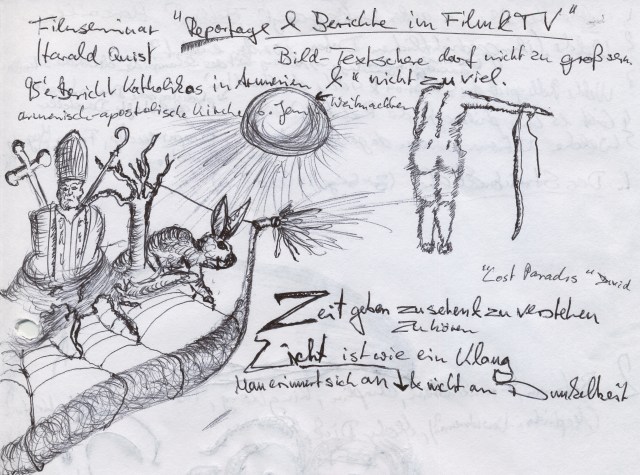 Filmseminar "Reportage & Berichte im Film & TV"
Harald Quist
Bild-Textschere darf nicht zu groß sein.
95'er Bericht Katholikos in Armenien & " nicht zu viel.
armenisch-apostolische Kirche 6. Jan Weihnachten
"Lost Paradis" David
Zeit geben zu sehen & zu verstehen
zu hören
Licht ist wie ein Klang
Man erinnert sich an & nicht an Dunkelheit